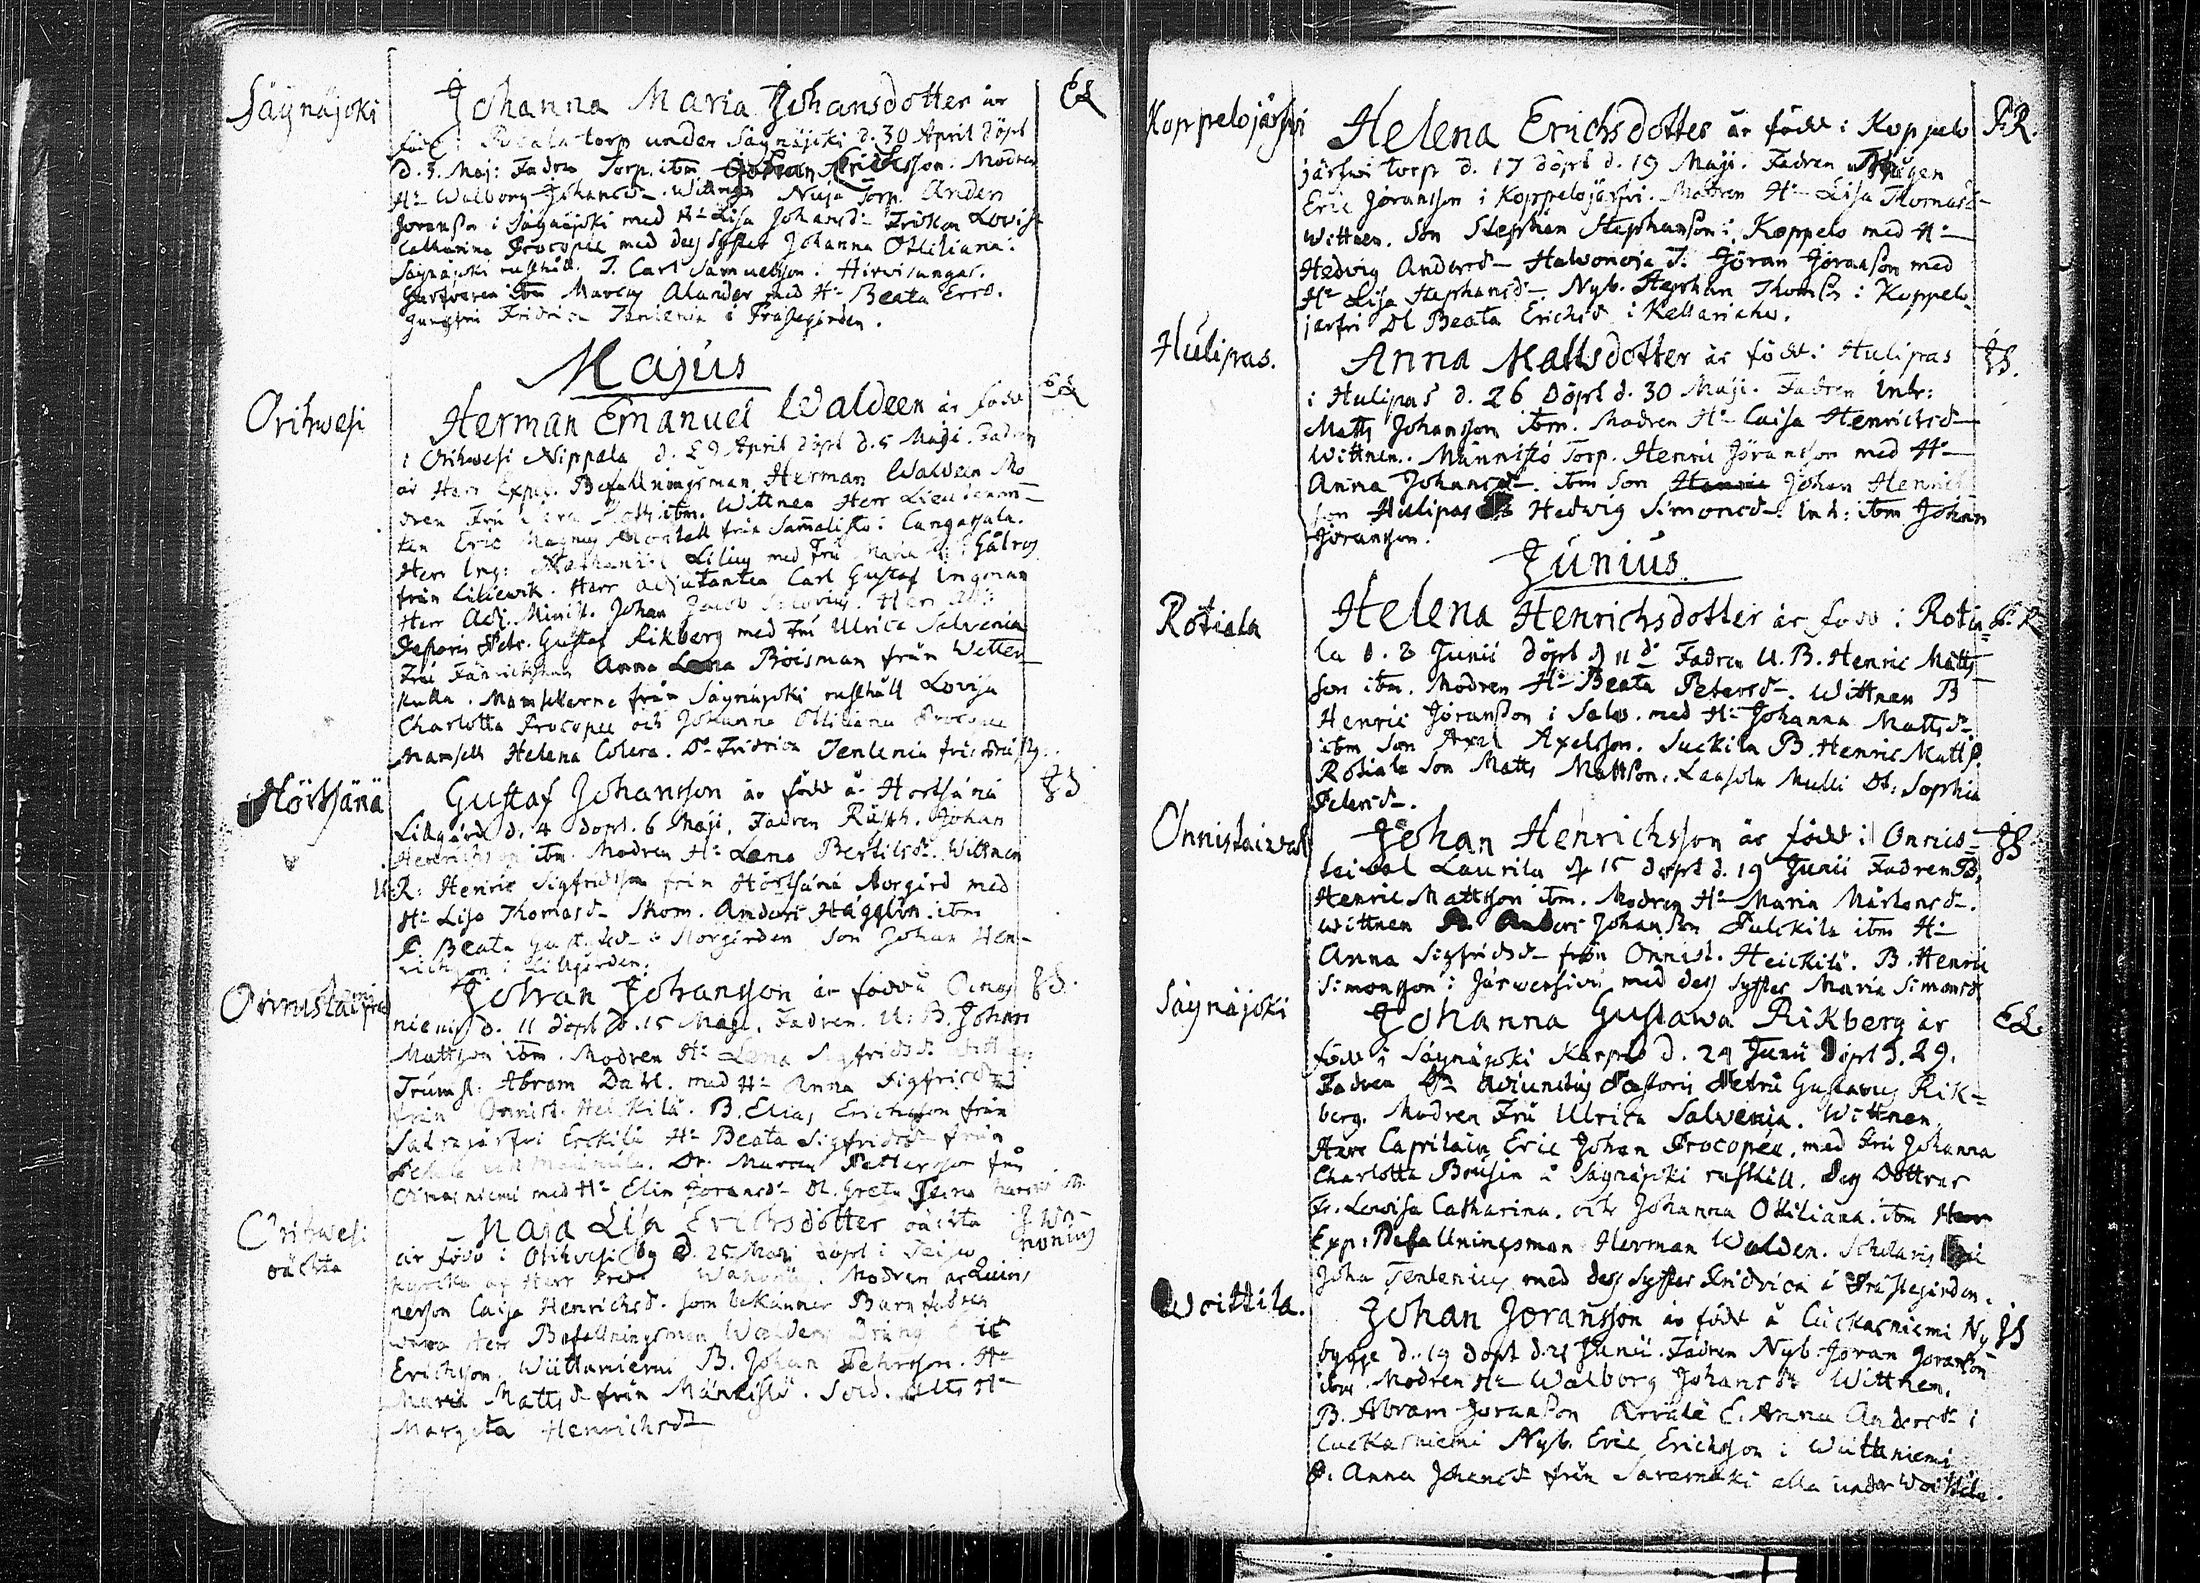 Säynäjoki
Johanna Maria Johansdotter är
född i torp under Säynäjoki d. 30 April döpt
d. 3. Maj: Fadren Torp. ibm Johan Erichsson. Modren
Hu Walborg Johansd. Wittnen Nuja Torp. Anders
Joransson i Säynäjoki med Hu Lisa Johansd. Fröken Lovisa
Catharina Procopée med dess Syster Johanna Ottiliana i
Säynäjoki rusthåll. S. Carl Samuelsson i Hirvisangas.
ibm Marcus Alander med Hu Beata Ersd.
Jungfru Fridrica Tenlenia i Prästegården.
EL
Majus
Orihwesi
Herman Emanuel Waldeen är född
i Orihwesi Nippala d. 29 April döpt d. 5 Maji. Fadren
är Herr Exped. Befallningsman Herman Waldeen Mo
dren Fru ibm. Wittnen Herr Lieutenan
ten Eric Magnus från Sammalisto i Cangasala.
Herr Ing: Nathaniel Lilius med Fru Maria
från Liliewik. Herr Adjutanten Carl Gustaf Ingman
Herr Adj. Minist. Johan Jacob Herr Adj:
Pastoris Petr. Gustaf Rikberg med Fru Ulrica Salvenia
Fru Fänrikskan Anna Lena Böisman från Wetter
kulla. Mamsellerne från Säynäjoki rusthåll Lovisa
Charlotta Procopee och Johanna Ottiliana Procopee
Mamsell Helena Colera. Dr Fridrica Tenlenia
EL
Hörtsänä
Gustaf Johansson är född å Hörtsänä
Lillgård d. 4 döpt. 6 Maji. Fadren Rusth. Johan
Henrichsson ibm. Modren Hu Lena Bertilsd. Wittnen
U.R: Henric Sigfridsson från Hörtsänä Storgård med
Hu Lisa Thomasd. Skom. Anders Hägglin. ibm
P. Beata Gustafsd. å Storgården Son Johan Hen-
richsson i Lillgården.
JS
Onnistai
Johan Johansson är född å
niemi d. 11 döpt d. 15 Maji. Fadren. U. B. Johan
Mattsson ibm. Modren Hu Lena Sigfridsd.
Trumsl. Abram Dahl. med Hu Anna Sigfridsd
från Onnist. Heickilä. B. Elias Erichsson från
Erckilä Hu Beata Sigfridsd från
Dr. Marcus Pettersson från
niemi med Hu Elin Joransd. Dl. Greta
JS.
Orihwesi
oächta
Maja Lisa Erichsdotter oächta
är född i Orihwesi By d. 25 Maji döpt i
af Herr Modren är Quins
person Caisa Henrichsd. som bekänner Barnfadren
wara Herr Befallningsman Waldens Dräng Eric
Erichsson Wiittaniemi B. Johan Pehrsson. Hu
Maria Mattsd. från Männistö. Sold. Hu
Margeta Henrichsd
J. Wa-
nonius
Koppelojärfwi
Helena Erichsdotter är född i Koppelo
järfwi torp d. 17 döpt d. 19 Maji. Fadren
Eric Jöransson i Koppelojärfwi. Modren Hu Lisa Thomasd
Wittnen. Son Stephan Stephansson i Koppelo med Hu
Hedvig Andersd. Halvonoja S. Jöran Jöransson med
Hu Lisa Stephansd. Nyb. Stephan Thomss i Koppelo
järfwi Dl Beata Erichsd i Kellariaho.
P.R.
Hulipas.
Anna Mattsdotter är född i Hulipas
i Hulipas d. 26 döpt d. 30 Maji. Fadren Inh:
Matts Johansson ibm. Modren Hu Caisa Henrichsd
Wittnen. Männistö Torp. Henric Jöransson med Hu
Anna Johansd. ibm Son Henric Johan Henrich
son Hulipas Hedwig Simonsd. Inh: ibm Johan
Jöransson.
JS.
Junius
Rotiala
Helena Henrichsdotter är född i Rotia
la d. 8 Junii döpt d 11 do Fadren U. B. Henric Matts
son ibm. Modren Hu Beata Petersd. Wittnen B
Henric Joransson i Salo. med Hu Johanna Mattsd.
ibm Son Axel Axelsson. Suckila B. Henric Matts
Rotiala Son Matts Mattsson. Laasola Mulli Dl. Sophia
Petersd.
P. R
Onnistaiwal
Johan Henrichsson är född i Onnis-
taiwal Laurila d 15 döpt d. 19 Junii Fadren B.
Henric Mattsson ibm. Modren Hu Maria Mårtensd.
Wittnen B. Anders Johansson Pulckila ibm Hu
Anna Sigfridsd från Onnist. Heickilä. B. Henric
Simonsson i Järwensivu med dess Syster Maria Simonsd
JS.
Säynäjoki
Johanna Gustawa Rikberg är
född i Säynäjoki Karpio d. 24 Junii döpt d. 29.
Fadren Hr Adjunctus Pastoris Petrus Gustavus Rik-
berg. Modren Fru Ulrica Salvenia. Wittnen
Herr Capitain Eric Johan Procopée. med Fru Johanna
Charlotta Brusin å Säynäjoki rusthåll. Dess Döttrar
Fr. Lovisa Catharina. och Johanna Ottiliana. ibm Herr
Exp: Befallningsman Herman Walden. Scholaris
Joha Tenlenius med dess Syster Fridrica i Prästegården.
EL.
Woittila.
Johan Joransson är född å Luckasniemi Ny
bygge d. 19 döpt d. 21 Junii. Fadren Nyb. Joran Joransson
ibm Modren Hu Walborg Johansd. Wittnen.
B. Abram Joransson Arvälä E. Anna Andersd. i
Luckasniemi Nyb. Eric Erichsson i Wiittaniemi
P. Anna Johansd. från Saramäki alla under Woittila.
JS